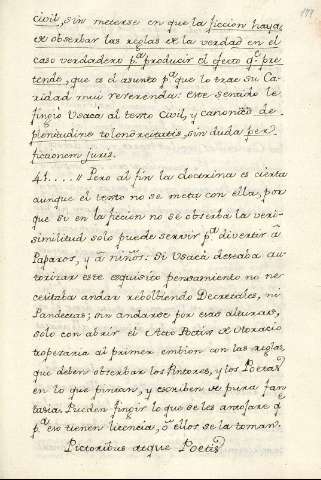 199
civil, sin meterse en que la ficcion haya
de observar las reglas de la verdad en el
caso verdadero pª producir el efecto qᵉ pre
tende, que es el asunto pª que lo trae su Ca
ridad mui reverenda: este sentido le
fingió Usacà al texto Civil, y canonico de
plenitudine colonorcitatis, sin duda per
fictionem juris.
41....// Pero al fin la doctrina es cierta
aunque el texto no se meta con ella, por
que si en la ficcion no se observa la veri
similitud solo puede servir pª divertir â
Páparos, y â niños: Si Usacà deseaba au
torizar este esquisito pensamiento no ne
cesitaba andar rebolbiendo Decretales, ni
Pandectas; sin andarse por esas alturas,
solo con abrir el Arte Poetica de Horacio
tropesaria al primer embion con las reglas
que deben observar los Pintores, y los Poetas
en lo que pintan, y escriben de pura fan
tasia. Pueden fingir lo que se les antojare qᵉ
pª eso tienen licencia, ô ellos se la toman.
Pictoribus atque Poetis